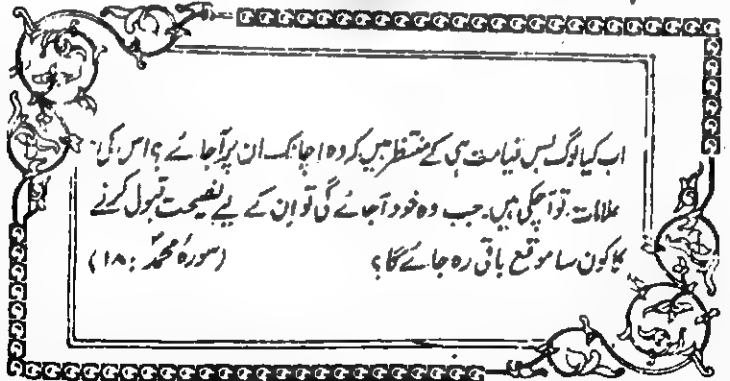 اب کیا لوگ بس قیامت ہی کے منتظر ہیں کہ وہ اچانک ان پر آجائے؟ اس کی
علامات تو آچکی ہیں۔ جب وہ خود آجائے گی تو ان کے لیے نصیحت قبول کرنے
کا کون سا موقع باقی رہ جائے گا؟ (سورۂ محمدؐ: ۱۸)